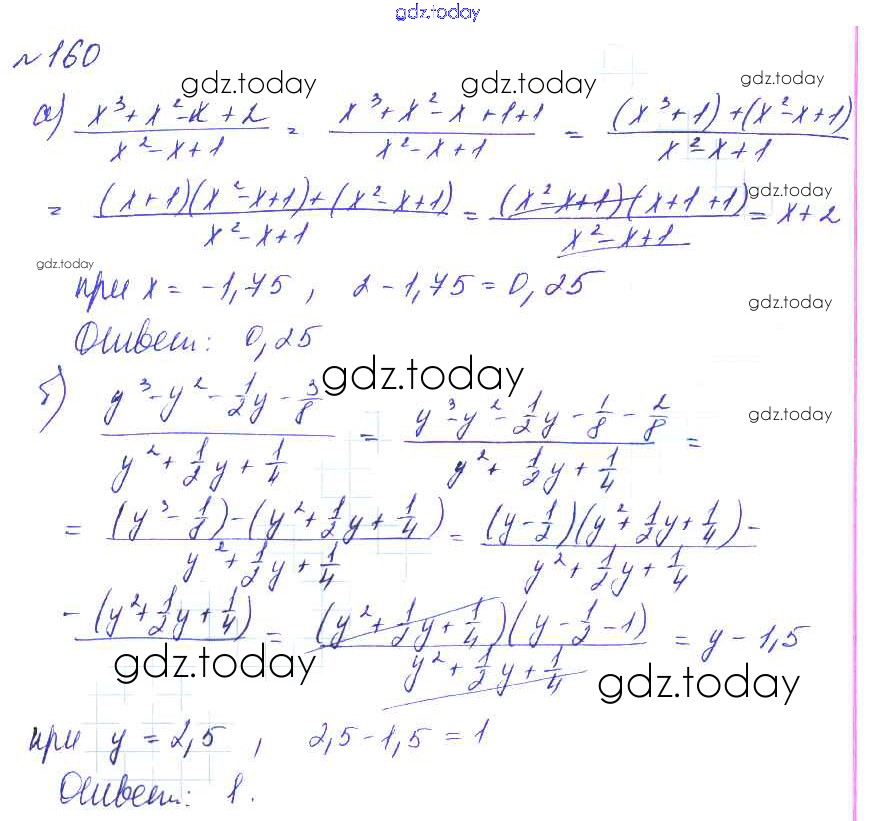 gdz.today
№160
gdz.today gdz.today gdz.today
а) (x³+x²-x+2)/(x²-x+1) = (x³+x²-x+1+1)/(x²-x+1) = ((x³+1)+(x²-x+1))/(x²-x+1)
gdz.today
= ((x+1)(x²-x+1)+(x²-x+1))/(x²-x+1) = ((x²-x+1)(x+1+1))/(x²-x+1) = x+2
gdz.today
при x = -1,75 , 2-1,75=0,25
gdz.today
Ответ: 0,25
gdz.today
б) (y³-y²-1/2y-3/8)/(y²+1/2y+1/4) = (y³-y²-1/2y-1/8-2/8)/(y²+1/2y+1/4) =
gdz.today
= ((y³-1/8)-(y²+1/2y+1/4))/(y²+1/2y+1/4) = ((y-1/2)(y²+1/2y+1/4)-)/(y²+1/2y+1/4)
-(y²+1/2y+1/4) = ((y²+1/2y+1/4)(y-1/2-1))/(y²+1/2y+1/4) = y-1,5
gdz.today gdz.today
при y = 2,5 , 2,5-1,5=1
Ответ: 1.